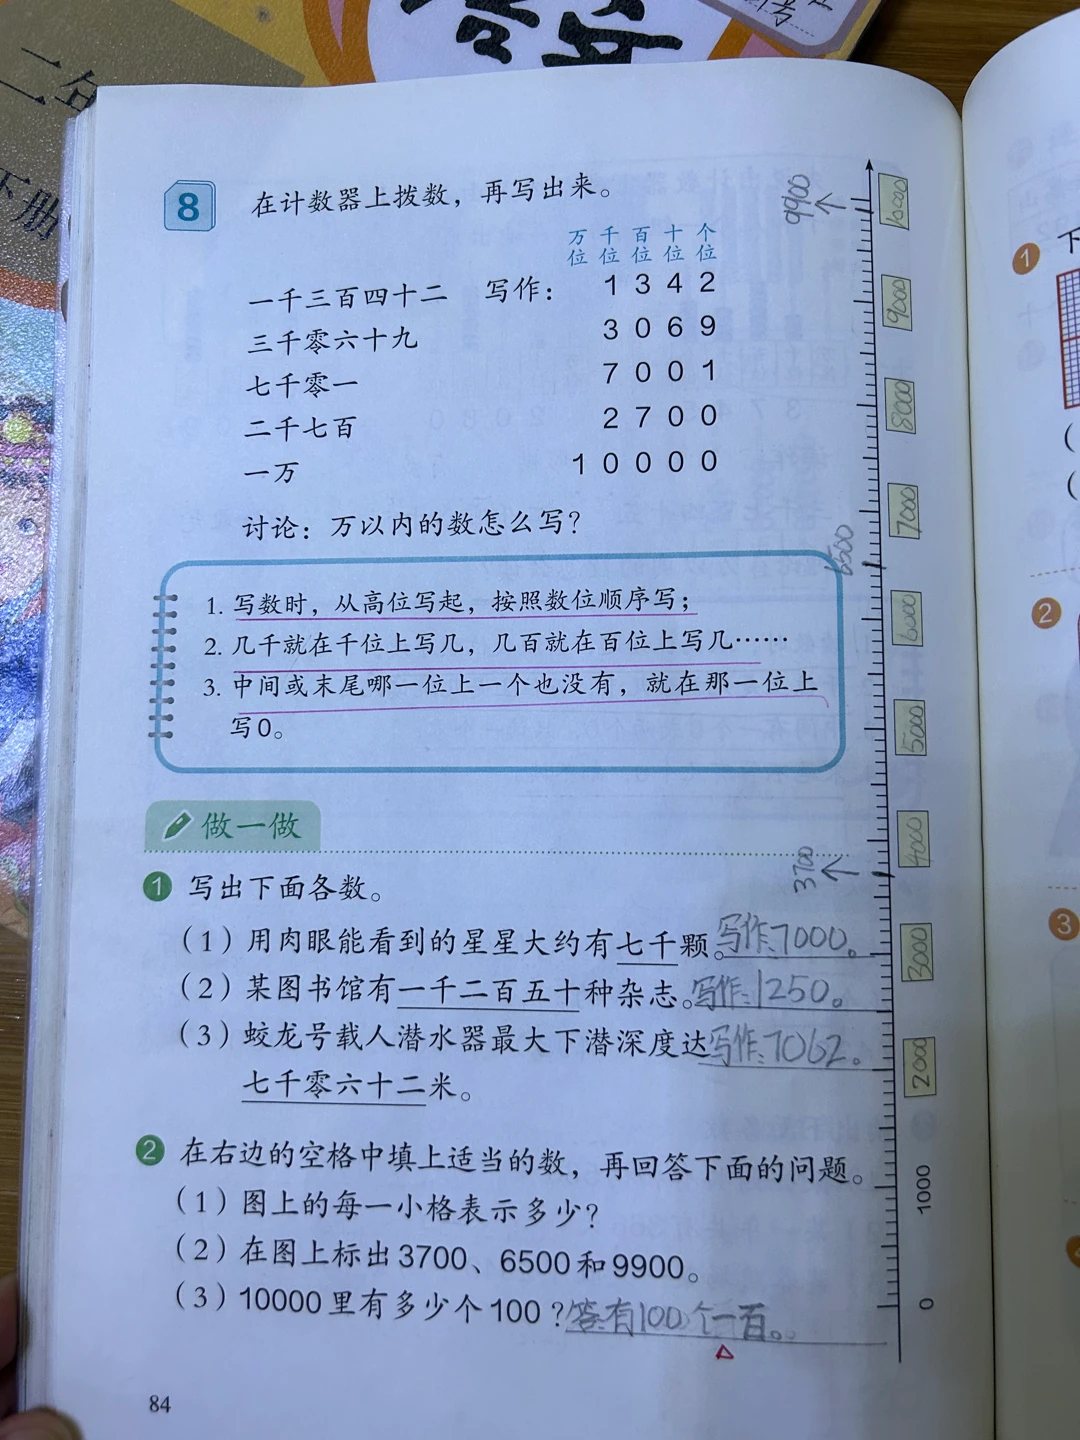 二年
下册
8 在计数器上拨数，再写出来。
万位 千位 百位 十位 个位
一千三百四十二 写作： 1 3 4 2
三千零六十九 3 0 6 9
七千零一 7 0 0 1
二千七百 2 7 0 0
一万 1 0 0 0 0
讨论：万以内的数怎么写？
1. 写数时，从高位写起，按照数位顺序写；
2. 几千就在千位上写几，几百就在百位上写几……
3. 中间或末尾哪一位上一个也没有，就在那一位上
写0。
做一做
1 写出下面各数。
（1）用肉眼能看到的星星大约有七千颗。写作:7000。
（2）某图书馆有一千二百五十种杂志。写作:1250。
（3）蛟龙号载人潜水器最大下潜深度达写作:7062。
七千零六十二米。
2 在右边的空格中填上适当的数，再回答下面的问题。
（1）图上的每一小格表示多少？
（2）在图上标出3700、6500和9900。
（3）10000里有多少个100？答:有100个一百。
84
9900
9000
8000
7000
6500
6000
5000
4000
3700
3000
2000
1000
0
1 下
2
3